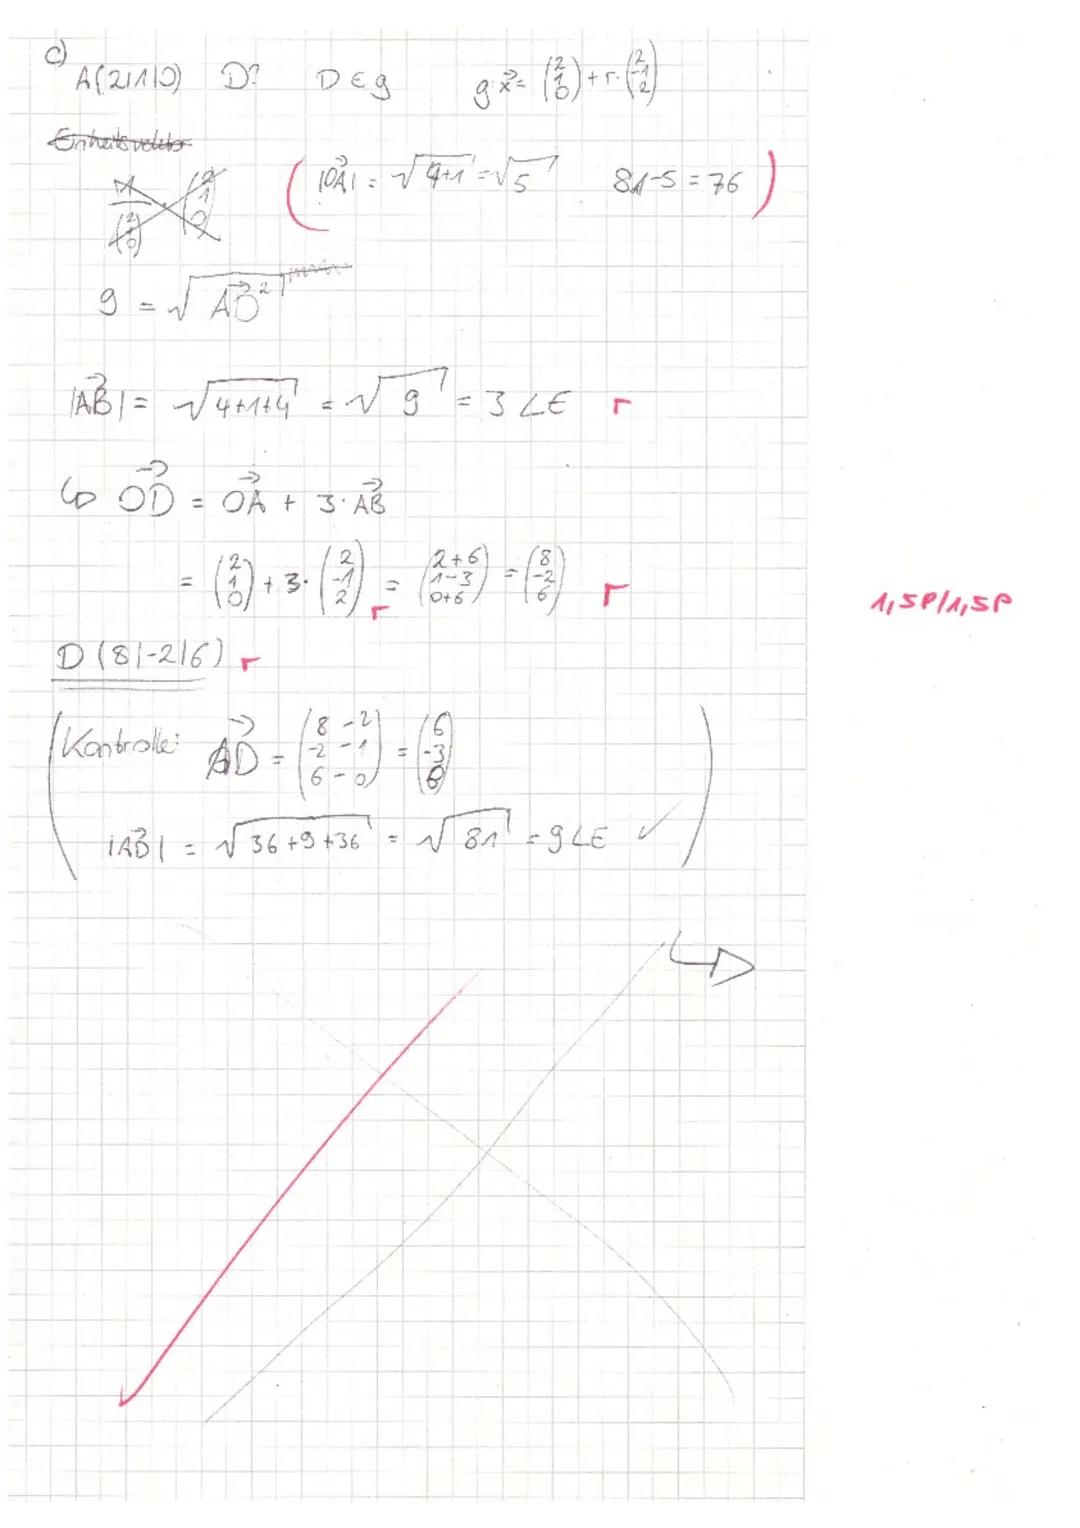 c)
A(2|1|0) D? D∈g g:x⃗ = (2 1 0) + r·(2 -1 2)
Einheitsvektor
1/(2 1 0) · (2 1 0) ( |OA⃗| = √4+1 = √5 81-5 = 76 )
9 = √AD⃗²
|AB⃗| = √4+1+4 = √9 = 3 LE r
↳ OD⃗ = OA⃗ + 3·AB⃗
= (2 1 0) + 3·(2 -1 2) r = (2+6 1-3 0+6) = (8 -2 6) r
1,5P/1,5P
D (8|-2|6) r
(Kontrolle: AD⃗ = (8-2 -2-1 6-0) = (6 -3 6)
|AB⃗| = √36+9+36 = √81 = 9 LE ✓)